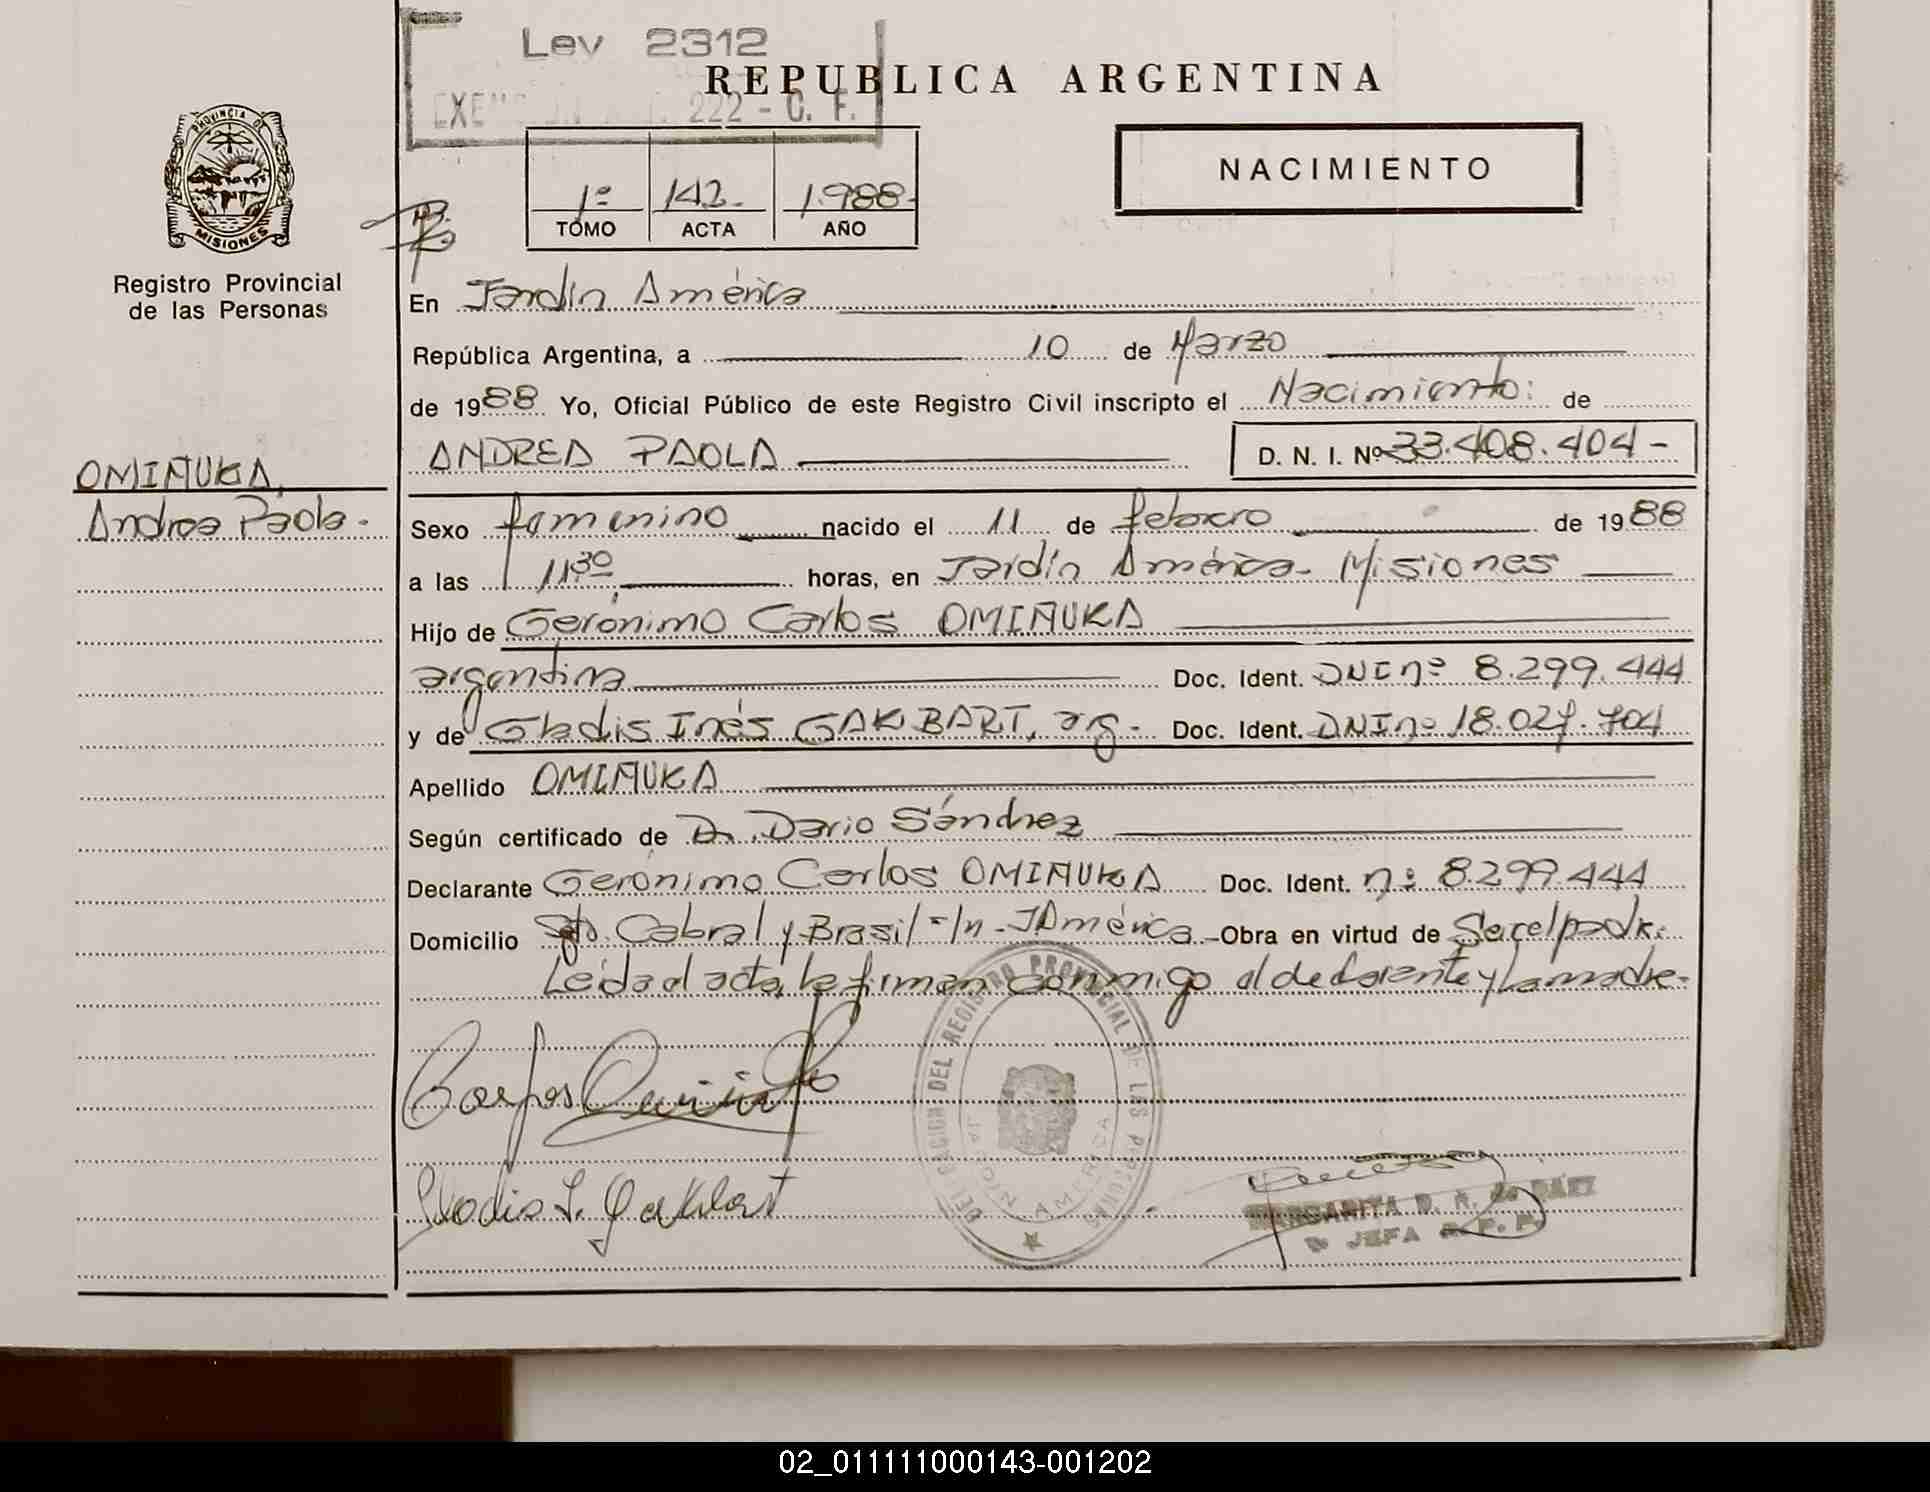 Ley 2312
REPUBLICA ARGENTINA
222 - C. F.
PROVINCIA DE
MISIONES
Registro Provincial
de las Personas
1º 142- 1.988-
TOMO ACTA AÑO
NACIMIENTO
En Jardín América
República Argentina, a 10 de Marzo
de 1988 Yo, Oficial Público de este Registro Civil inscripto el Nacimiento: de
ANDREA PAOLA D. N. I. Nº 33.408.404-
OMIÑUKA,
Andrea Paola-
Sexo femenino nacido el 11 de febrero de 1988
a las 11:30 horas, en Jardín América- Misiones
Hijo de Gerónimo Carlos OMIÑUKA
argentina Doc. Ident. DNI nº 8.299.444
y de Gladis Inés GAKLBART, arg- Doc. Ident. DNI nº 18.027.704
Apellido OMIÑUKA
Según certificado de Dr. Dario Sánchez
Declarante Gerónimo Carlos OMIÑUKA Doc. Ident. nº 8.299.444
Domicilio Sgto. Cabral y Brasil s/n - J América - Obra en virtud de Ser el padre.
Leída el acta, la firman conmigo el declarante y la madre-
DELEGACION DEL REGISTRO PROVINCIAL DE LAS PERSONAS
JARDIN AMERICA
Gladis I. Gaklbart
MARGARITA D. R. de BÁEZ
JEFA R. P. P.
02_011111000143-001202